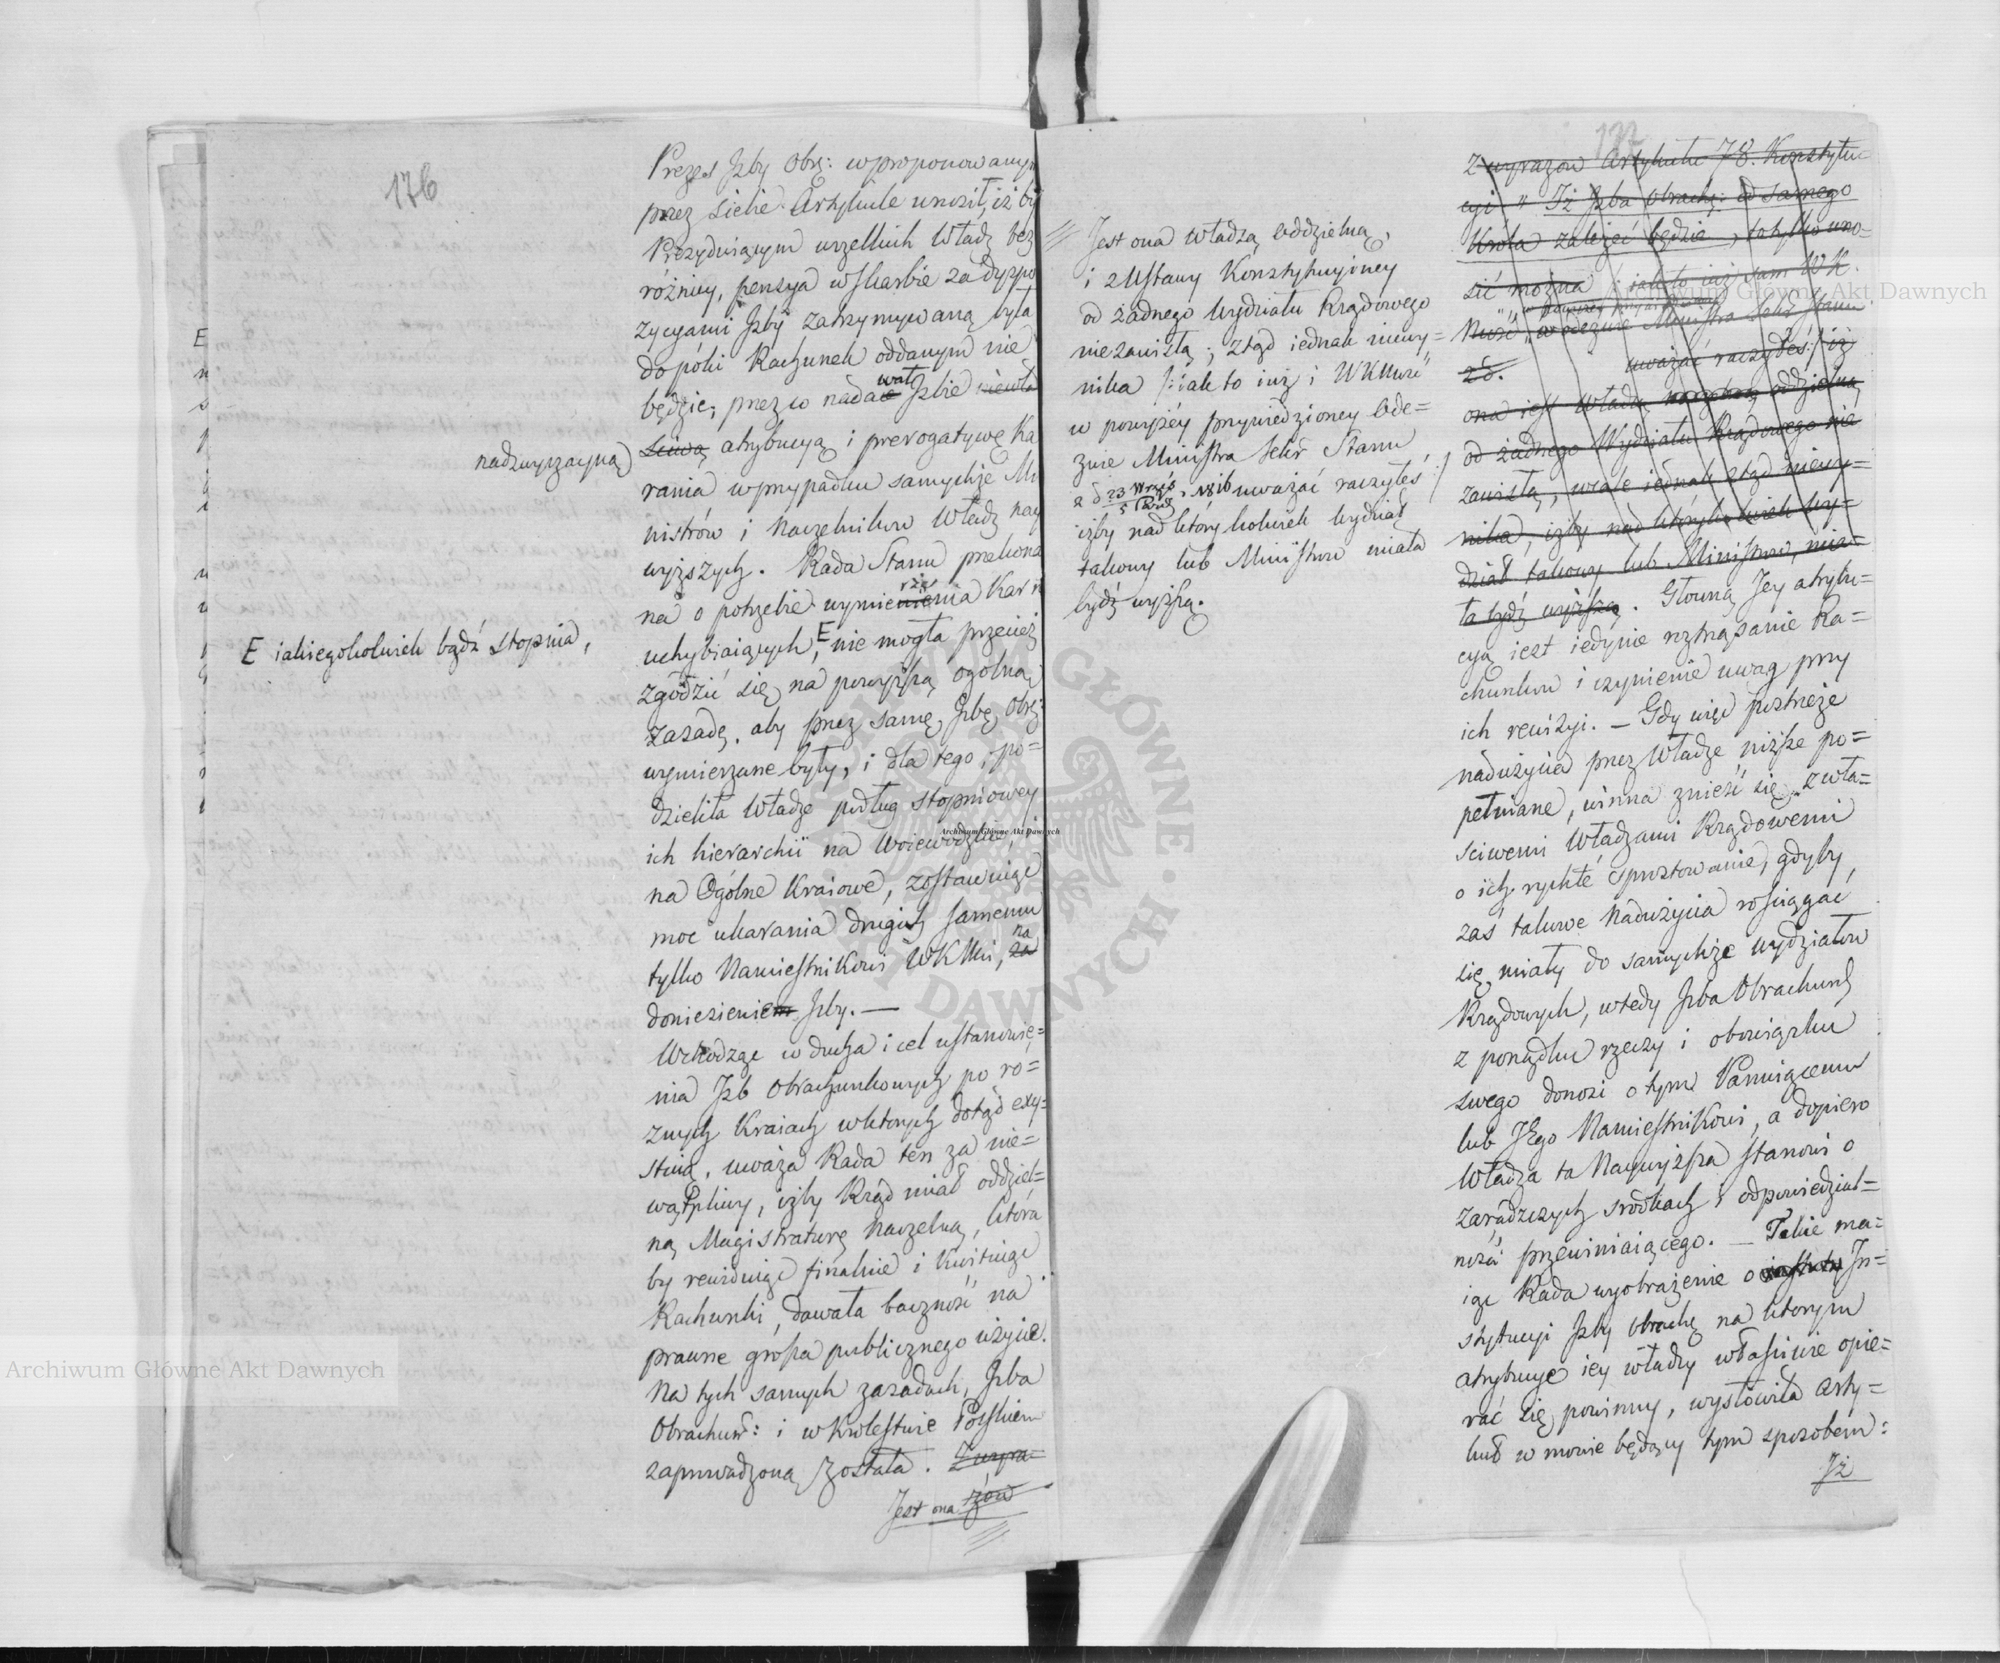 176
Prezes Jzby Obrę: w proponowanym
przez siebie Artykule unosił, iż by
Prezyduiącym wszelkich Władz bez
różnicy, pensya w Skarbie za dyspo
zycyami Jzby zatrzymywaną była
dopóki Rachunek oddanym nie
będzie; przez co nadawał Jzbie niewła
sciwą atrybucyą i prerogatywę Ka
nadzwyczayną
rania w przypadku samychże Mi
nistrów i Naczelników Władz nay
wyższych. Rada Stanu przekona
na o potrzebie wymierzenia Kar n
uchybiaiących, E nie mogła przecież
E iakiegokolwiek bądź stopnia,
zgodzić się na powyższą ogólną
zasadę, aby przez samę Jzbę Obrę:
wymierzane były, i dla tego, po=
dzieliła Władze podług stopniowey
ich hierarchii na Woiewodzkie, i
na Ogólne Kraiowe, zostawuiąc
moc ukarania drugich samemu
tylko Namiestnikowi WKMci, za na
doniesieniem Jzby. —
Wchodząc w ducha i cel ustanowie=
nia Jzb Obrachunkowych po ró=
znych Kraiach w których dotąd exy=
stuią, uważa Rada ten za nie=
wątpliwy, iżby Rząd miał oddziel=
ną Magistraturę Naczelną, która
by rewiduiąc finalnie i Kwituiąc
Rachunki, dawała baczność na
prawne grosza publicznego użycie.
Na tych samych zasadach, Jzba
Obrachun: i w Królestwie Polskiem
zaprowadzoną została. Z wyra=
zów
Jest ona
Jest ona Władzą oddzielną,
i z Ustawy Konstytucyiney
od żadnego Wydziału Rządowego
niezawisłą; ztąd iednak niewy=
nika /: iak to iuż i WKMość
w powyżéy przywiedzioney Ode=
zwie Ministra Sekr Stanu
z d 23 Wrześ / 5 Paźdz 1816 uważać raczyłeś :/
iżby nad którykolwiek Wydział
takowy lub Ministrów miała
bydź wyższą.
177
Z wyrazów Artykułu 78. Konstytu=
cyi „ Iż Jzba obrach: od samego
Króla zależeć będzie, to tylko wno=
sić można iak to iuż sam WK
Mość w odezwie Ministra Sekr Stanu
z d. uważać raczyłeś :/ iż
ona iest Władzą oddzielną
od żadnego Wydziału Rządowego nie
zawisłą, wcale iednak ztąd niewy=
nika, iżby nad którykolwiek Wy=
dział takowy lub Ministrów, mia=
ła bydź wyższą. Główną Jey atrybu=
cyą iest iedynie roztrząsanie Ra=
chunków i czynienie uwag przy
ich rewizyi. — Gdy więc postrzeże
nadużycia przez Władze niższe po=
pełniane, winna znieść się z wła=
sciwemi Władzami Rządowemi
o ich rychłe sprostowanie, gdyby
zaś takowe Nadużycia rościągać
się miały do samychże wydziałów
Rządowych, wtedy Jzba Obrachun
z porządku rzeczy i obowiązku
swego donosi o tym Panuiącemu
lub JEgo Namiestnikowi, a dopiero
Władza ta Naywyższa stanowi o
zaradczych srodkach i odpowiedzial=
ności przewiniaiącego. — Takie ma=
iąc Rada wyobrażenie o In=
stytucyi Jzby Obrachę na którym
atrybucye iey władzy właściwie opie=
rać się powinny, wysłowiła Arty=
kuł w mowie będący tym sposobem:
Iż
Archiwum Główne Akt Dawnych
Archiwum Główne Akt Dawnych
Archiwum Główne Akt Dawnych
ARCHIWUM GŁÓWNE AKT DAWNYCH